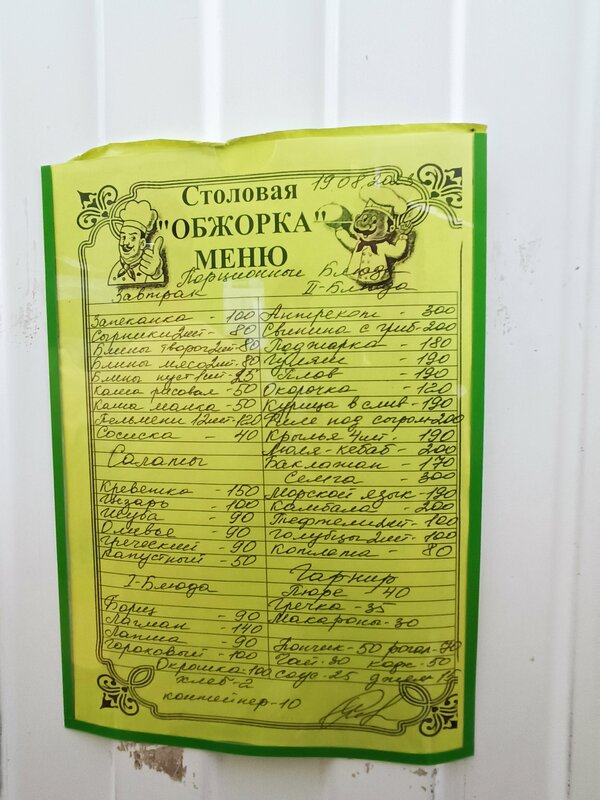 Столовая
19 08.202
"ОБЖОРКА"
МЕНЮ
Порционные Блюда
Завтрак
Запеканка - 100
Сырники 2шт - 80
Блины творог 2шт 80
Блины мясо 2шт. 80
Блины пуст 1шт - 25
Каша рисовая - 50
Каша манка - 50
Пельмени 12шт-120
Сосиска - 40
Салаты
Креветка - 150
Цезарь - 100
Шуба - 90
Оливье - 90
Греческий - 90
Капустный - 50
I-Блюда
Борщ - 90
Лагман - 140
Лапша - 90
Гороховый - 100
II-Блюда
Антрекот - 300
Свинина с гриб-200
Поджарка - 180
Гуляш - 190
Плов - 190
Окорочка - 120
Курица в слив-190
Филе под сыром-200
Крылья 4шт. - 190
Люля-кебаб - 200
Баклажан - 170
Семга - 300
Морской язык - 190
Камбала - 200
Тефтели 2шт - 100
Голубцы 2шт - 100
Котлета - 80
Гарнир
Пюре - 40
Гречка - 35
Макароны - 30
Пончик - 50 рогал-70
Чай-30 кофе-50
Окрошка-100 соус-25 джем
хлеб-2
контейнер-10